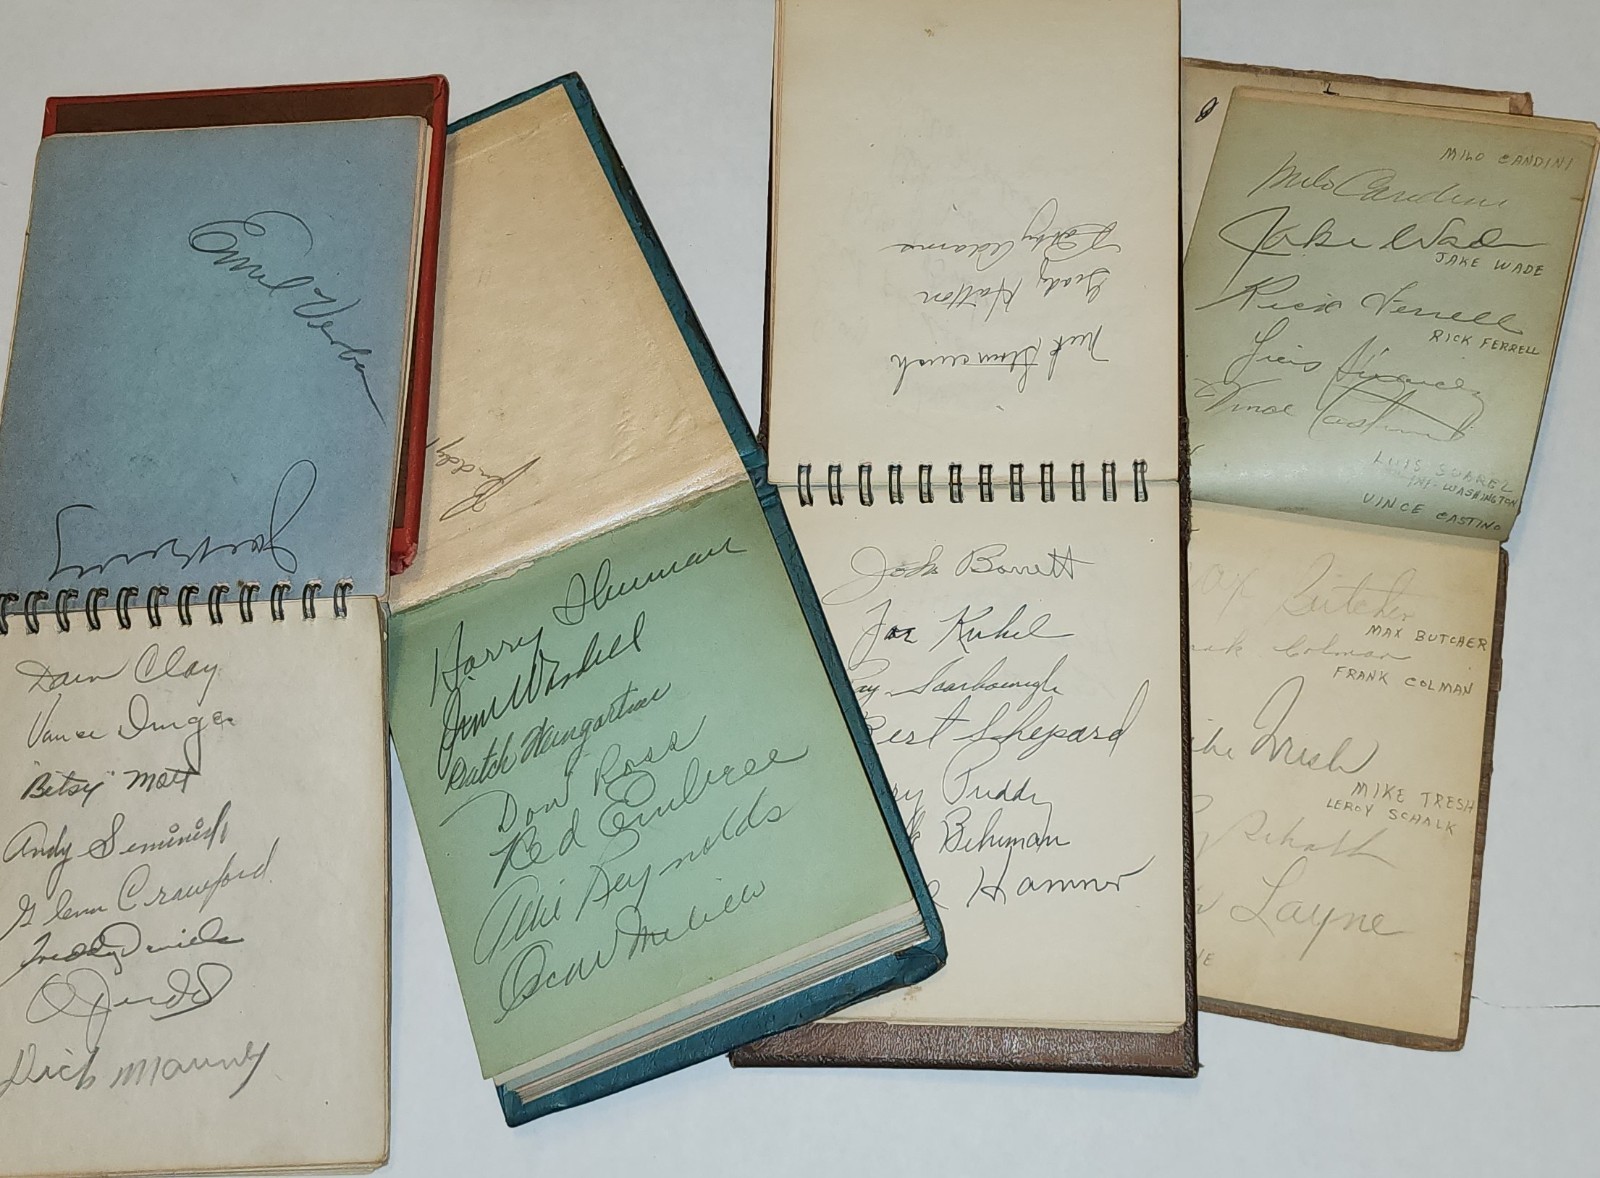 Emil Verban
Dain Clay
Vance Dinges
"Betsy" Mott
Andy Seminick
Glenn Crawford
Freddy Daniels
Dick Mauney
Buddy
Harry Shuman
Jim Wasdell
Dutch
Don Ross
Red Embree
Allie Reynolds
Oscar Melillo
Bobby Adams
Grady Hatton
Nick
John Barrett
Joe Kuhel
Ray Scarborough
Bert Shepard
Priddy
Behrman
Hamner
MILO CANDINI
Milo Candini
Jake Wade
JAKE WADE
Rick Ferrell
RICK FERRELL
Luis Suarez
Vince Castino
LUIS SUAREZ
IN WASHINGTON
VINCE CASTINO
Max Butcher
MAX BUTCHER
Frank Colman
FRANK COLMAN
Mike Tresh
MIKE TRESH
LEROY SCHALK
Layne